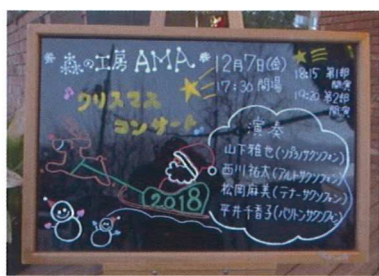 森の工房 AMA
12月7日(金)
17:30 開場
18:15 第1部
開演
19:20 第2部
開演
クリスマス
コンサート
演奏
山下雅也(ソプラノサクソフォン)
西川祐太(アルトサクソフォン)
松岡麻美(テナーサクソフォン)
平井千香子(バリトンサクソフォン)
2018